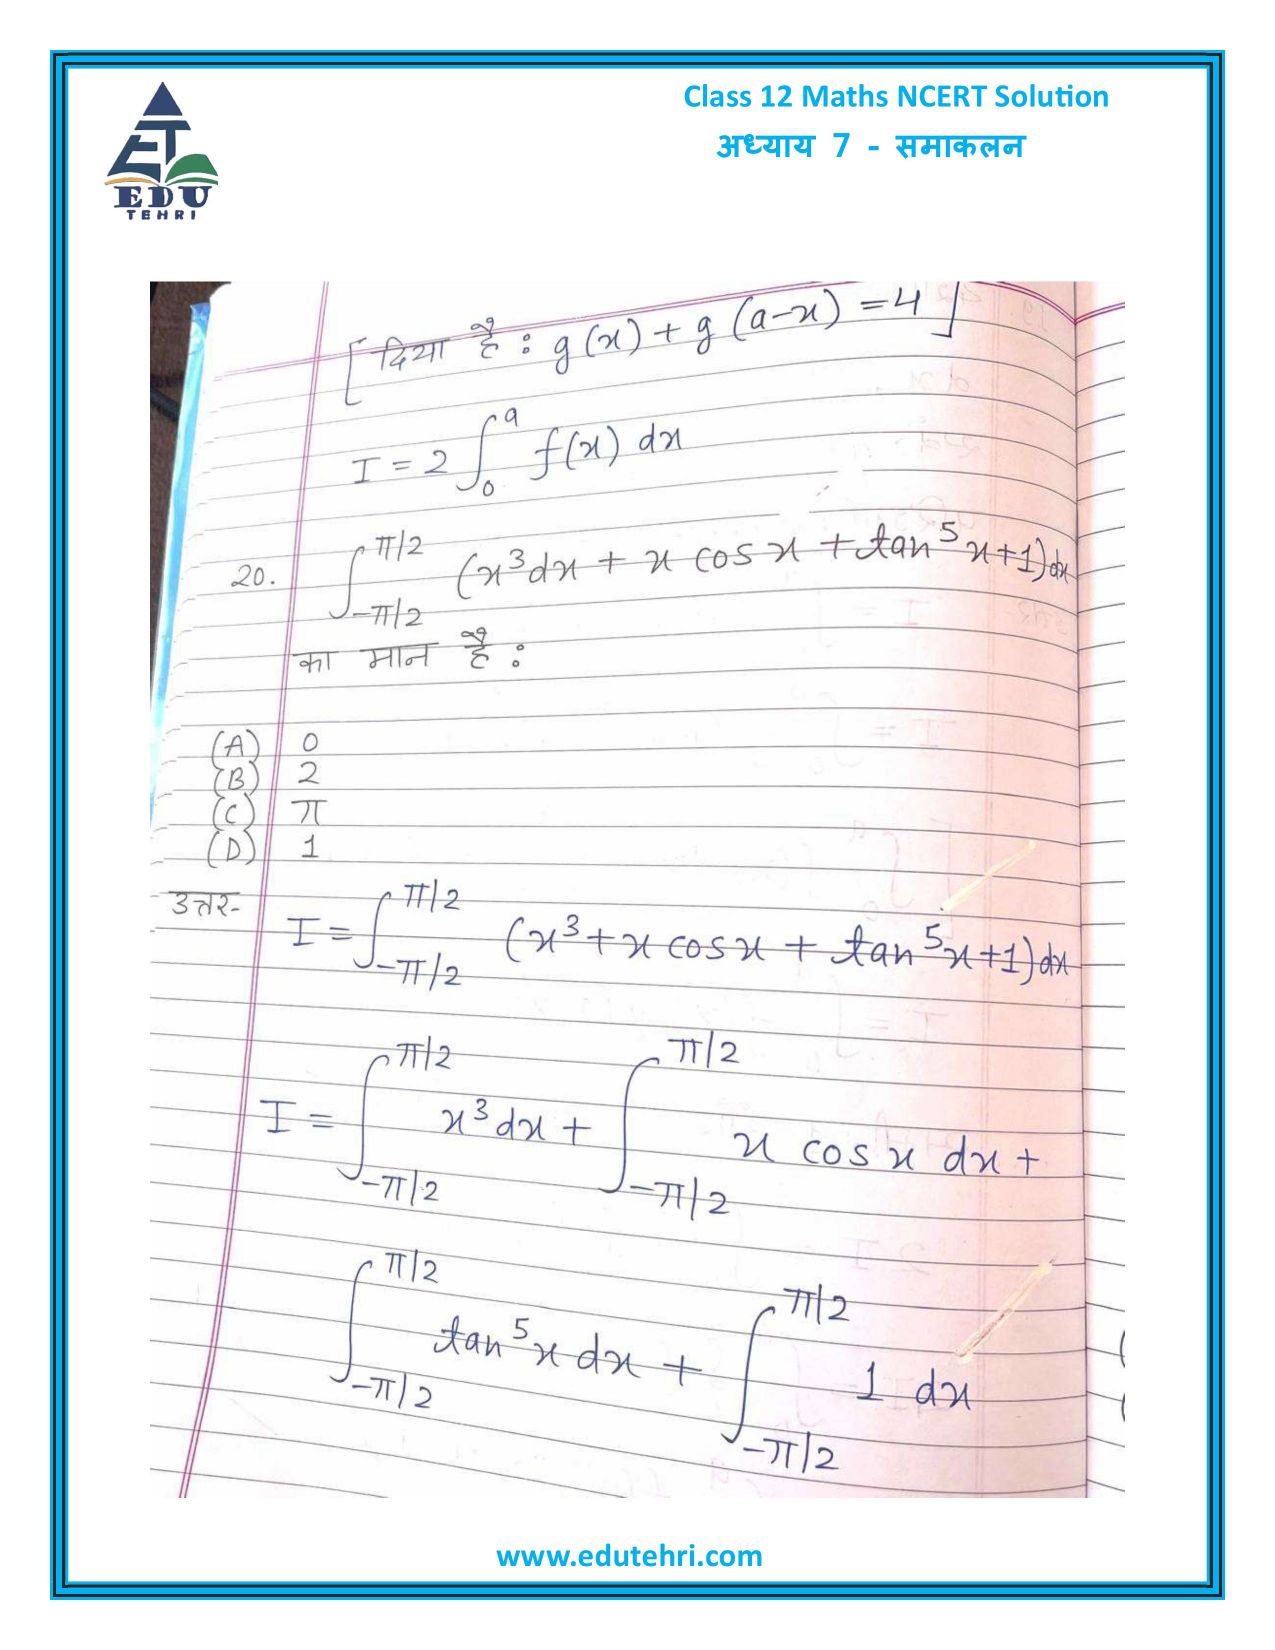 Class 12 Maths NCERT Solution
अध्याय 7 - समाकलन
EDU
TEHRI
[दिया है : g(x) + g(a-x) = 4]
I = 2 ∫₀ᵃ f(x) dx
20. ∫_{-π/2}^{π/2} (x³dx + x cos x + tan⁵x+1)dx
का मान है :
(A) 0
(B) 2
(C) π
(D) 1
उत्तर- I = ∫_{-π/2}^{π/2} (x³ + x cos x + tan⁵x+1)dx
I = ∫_{-π/2}^{π/2} x³dx + ∫_{-π/2}^{π/2} x cos x dx +
∫_{-π/2}^{π/2} tan⁵x dx + ∫_{-π/2}^{π/2} 1 dx
www.edutehri.com